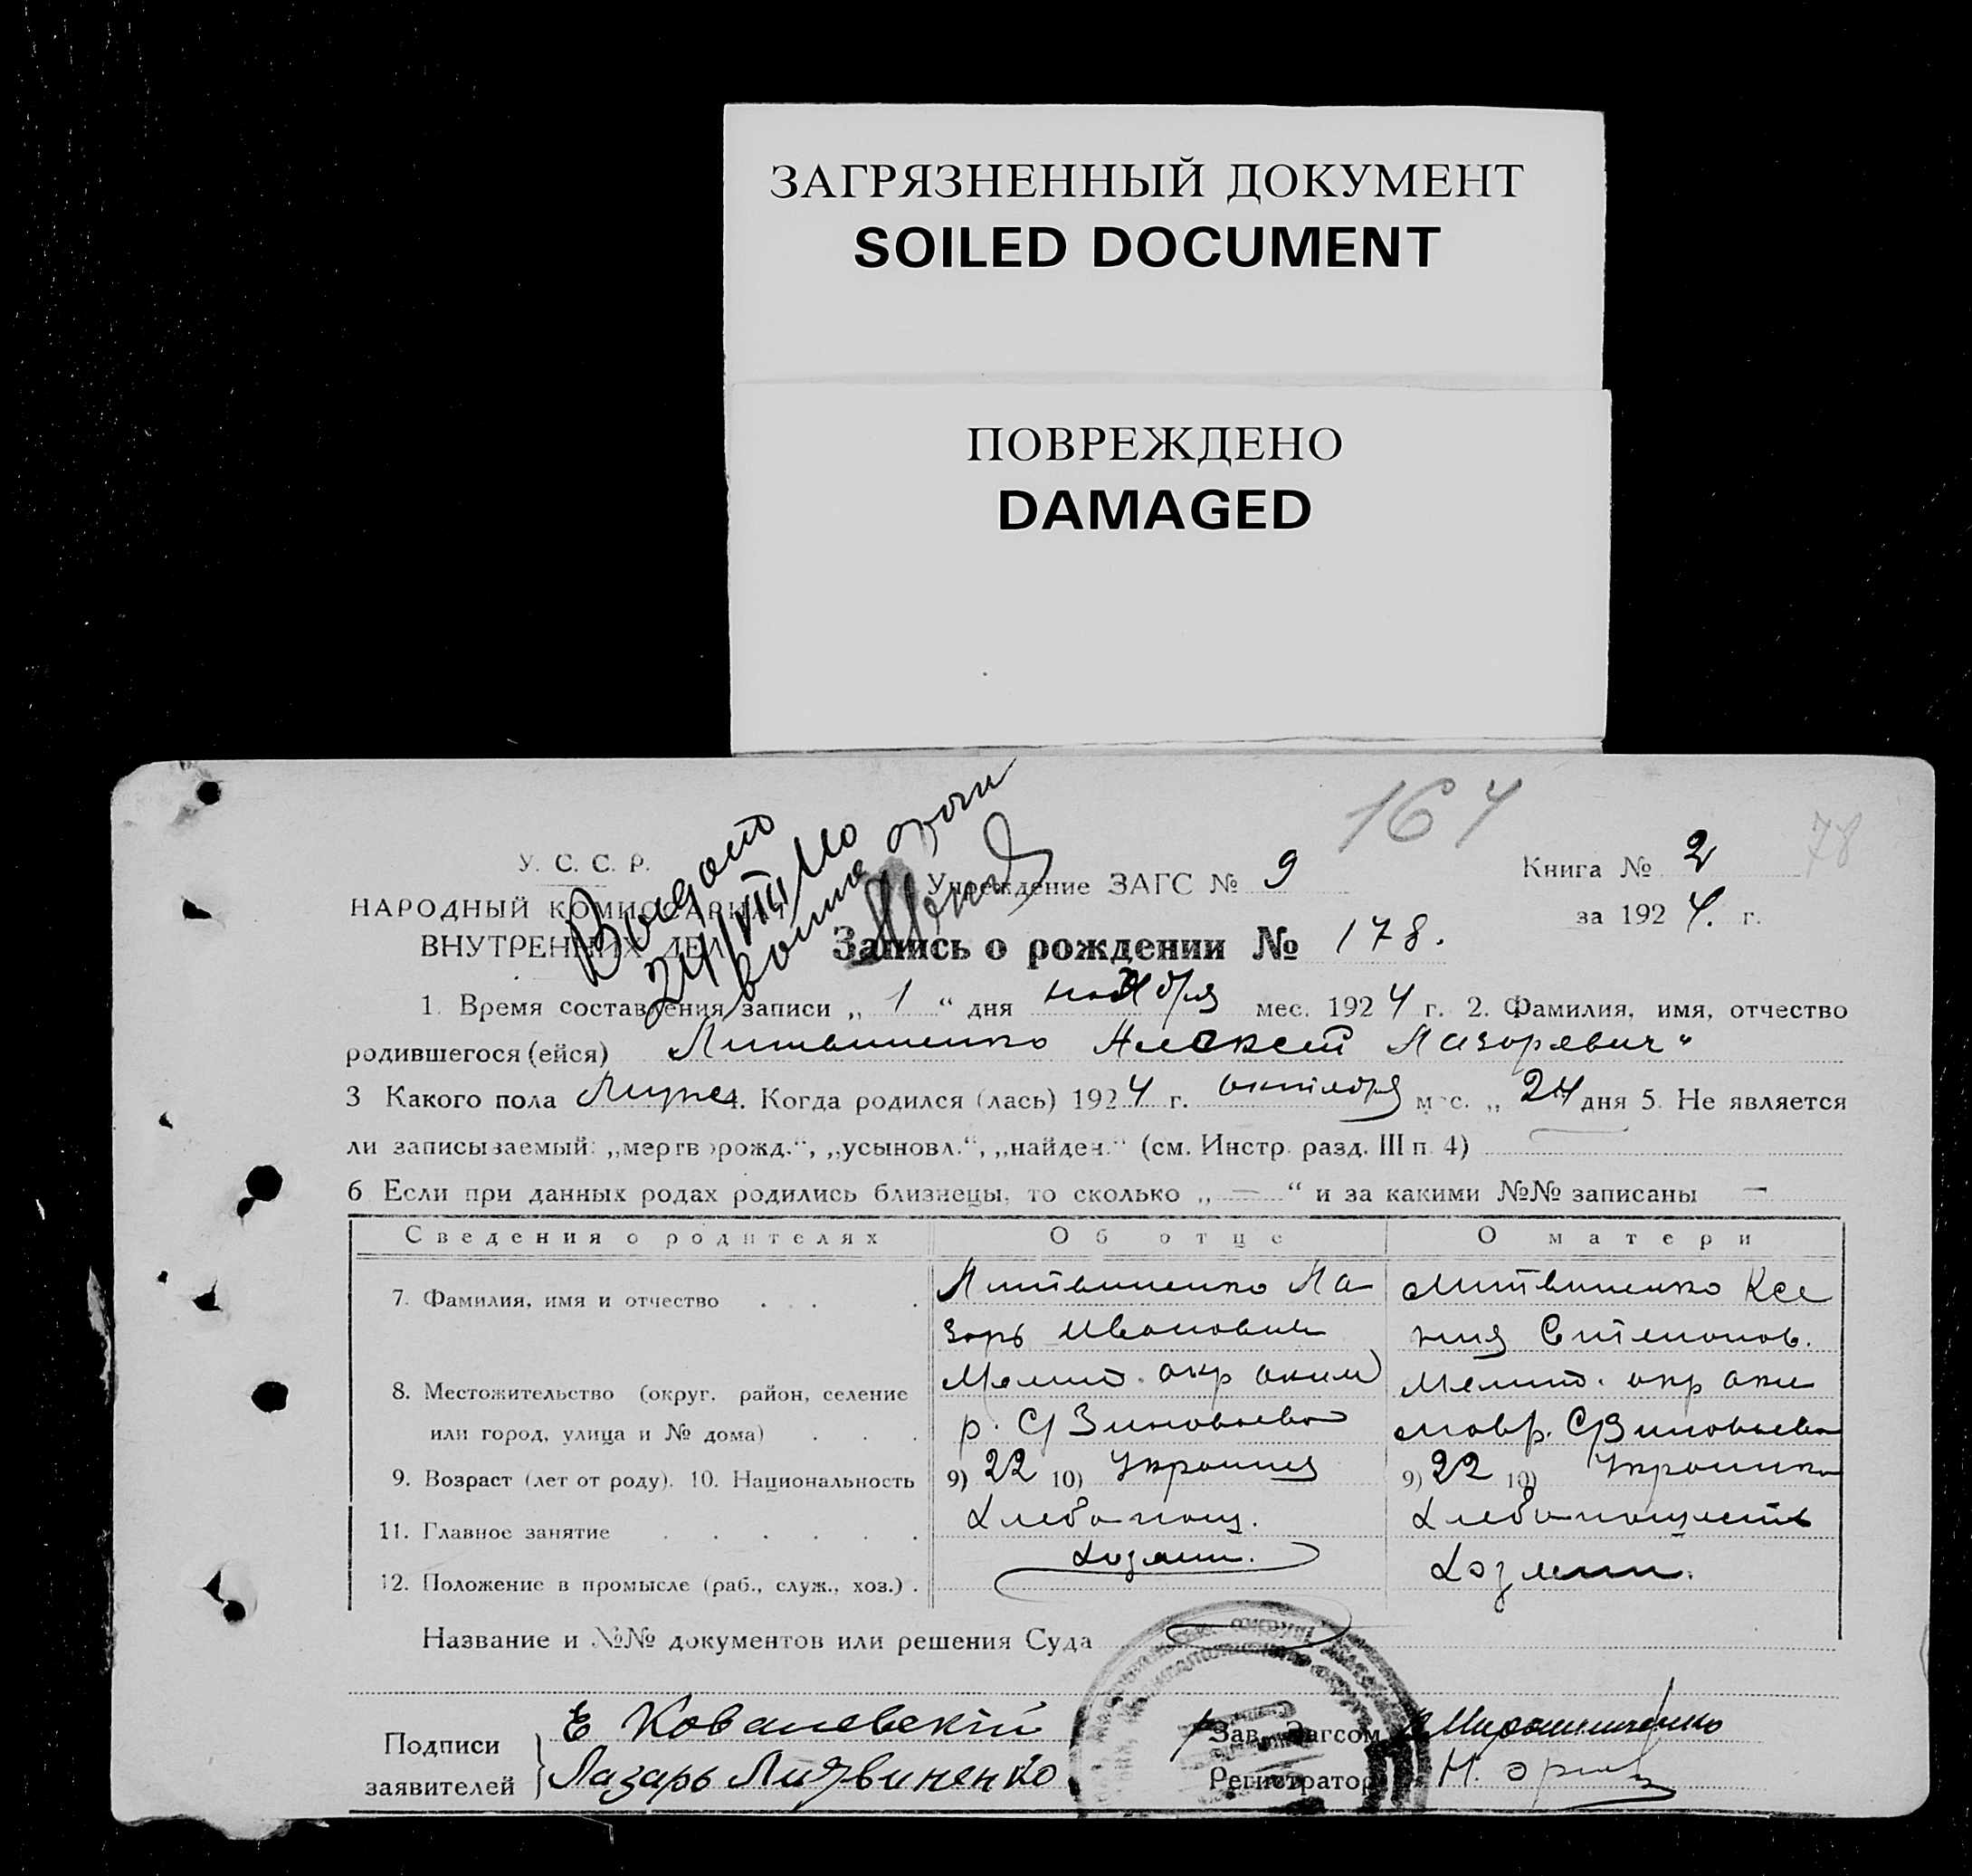 ЗАГРЯЗНЕННЫЙ ДОКУМЕНТ
SOILED DOCUMENT
ПОВРЕЖДЕНО
DAMAGED
164
78
У. С. С. Р.
НАРОДНЫЙ КОМИССАРИАТ
ВНУТРЕННИХ ДЕЛ
Учреждение ЗАГС № 9
Книга № 2
за 1924. г.
Запись о рождении № 178.
1. Время составления записи „ 1 “ дня ноября мес. 1924 г. 2. Фамилия, имя, отчество
родившегося (ейся) Литвиненко Алексей Лазоревич
3 Какого пола Муж 4. Когда родился (лась) 1924 г. октября мес. „ 24 дня 5. Не является
ли записываемый: „мертворожд.“, „усыновл.“, „найден.“ (см. Инстр. разд. III п. 4)
6 Если при данных родах родились близнецы, то сколько „ — “ и за какими №№ записаны —
Сведения о родителях Об отце О матери
7. Фамилия, имя и отчество Литвиненко Ла Литвиненко Ксе
зорь Иванович ния Степанов.
8. Местожительство (округ. район, селение Мелит. окр Аким Мелит. окр Аки
или город, улица и № дома) р. С/ Зиновьево мовр. С/Зиновьево
9. Возраст (лет от роду). 10. Национальность 9) 22 10) Украинец 9) 22 10) Украинка
11. Главное занятие Хлебопащ. Хлебопашество
12. Положение в промысле (раб., служ., хоз.) . Хозяин. Хозяин.
Название и №№ документов или решения Суда
Подписи заявителей
Е Ковалевскій
Лазарь Литвиненко
Зав. Загсом Мирошниченко
Регистратор